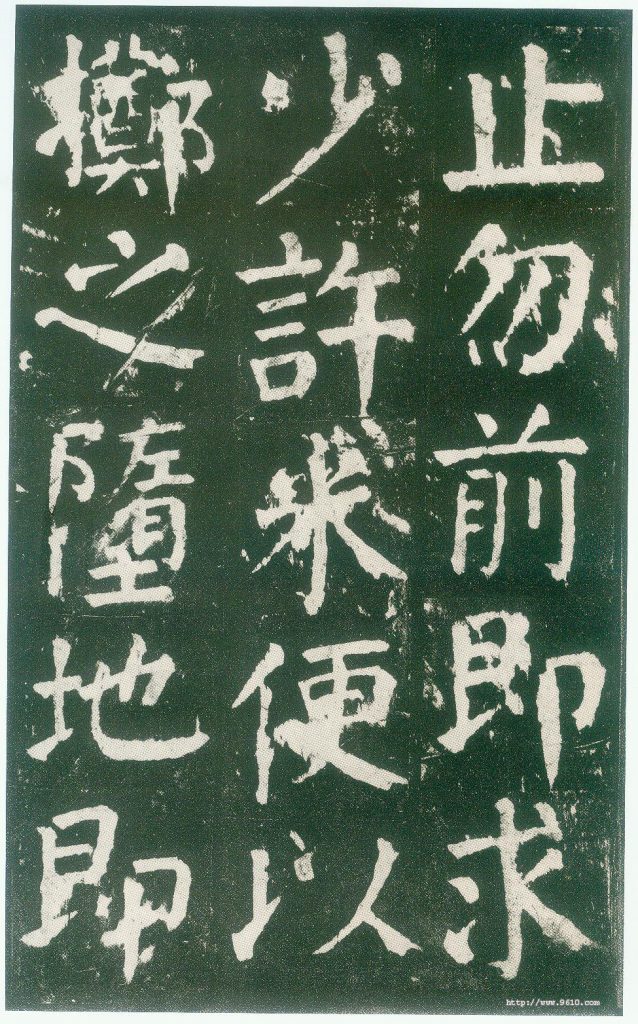 止勿前即求
少許米便以
擲之墮地即
http://www.9610.com